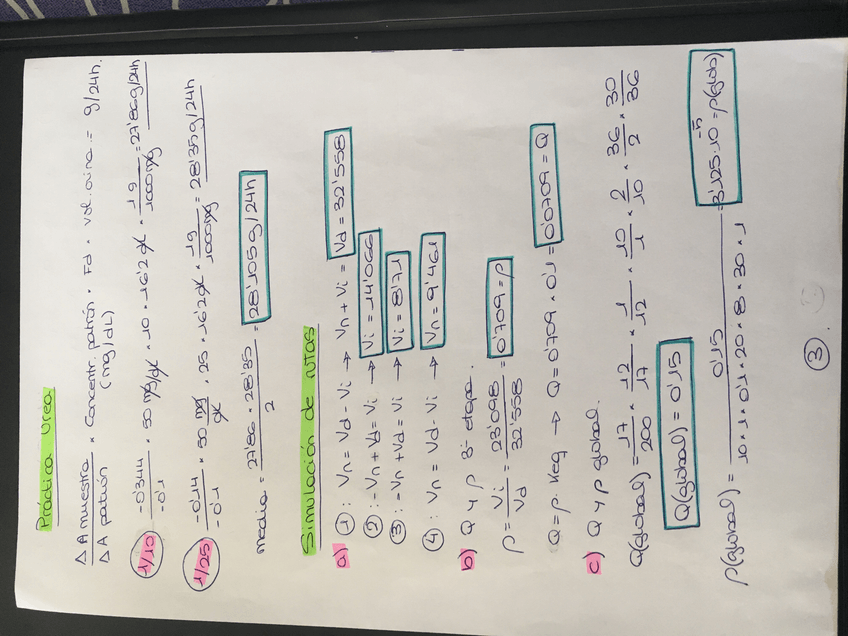 Práctica Urea
Δ A muestra / Δ A patrón × Concentr. patrón (mg/dL) × Fd × vol. orina = g/24h.
1/10 -0'344 / -0'1 × 50 mg/dL × 10 × 16'2 dL × 1g / 1000mg = 27'86g/24h
1/25 -0'14 / -0'1 × 50 mg/dL × 25 × 16'2 dL × 1g / 1000mg = 28'35g/24h
media = 27'86 × 28'35 / 2 = 28'105g/24h
Simulación de rutas
a) 1: Vn = Vd - Vi → Vn + Vi = Vd = 32'558
2: -Vn + Vd = Vi → Vi = 14'066
3: -Vn + Vd = Vi → Vi = 8'71
4: Vn = Vd - Vi → Vn = 9'461
b) Q y ρ 3ª etapa.
ρ = Vi / Vd = 23'098 / 32'558 = 0'709 = ρ
Q = ρ · Keq → Q = 0'709 × 0'1 = 0'0709 = Q
c) Q y ρ global.
Q(global) = 17/200 × 12/17 × 1/12 × 10/1 × 2/10 × 36/2 × 30/36
Q(global) = 0'15
ρ(global) = 0'15 / 10 × 1 × 0'1 × 20 × 8 × 30 × 1 = 3'125·10⁻⁵ = ρ(glob)
3.